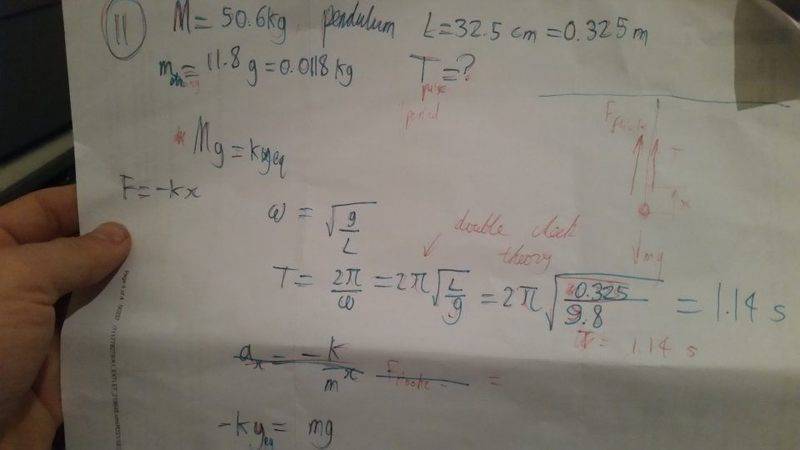 11 M = 50.6kg pendulum L = 32.5 cm = 0.325 m
m = 11.8 g = 0.0118 kg T = ?
period
Mg = kyeq
F = -kx
x
mg
ω = √(g/L)
double check
theory
T = 2π/ω = 2π√(L/g) = 2π√(0.325/9.8) = 1.14 s
= 1.14 s
ax = -k/m x =
-kyeq = mg